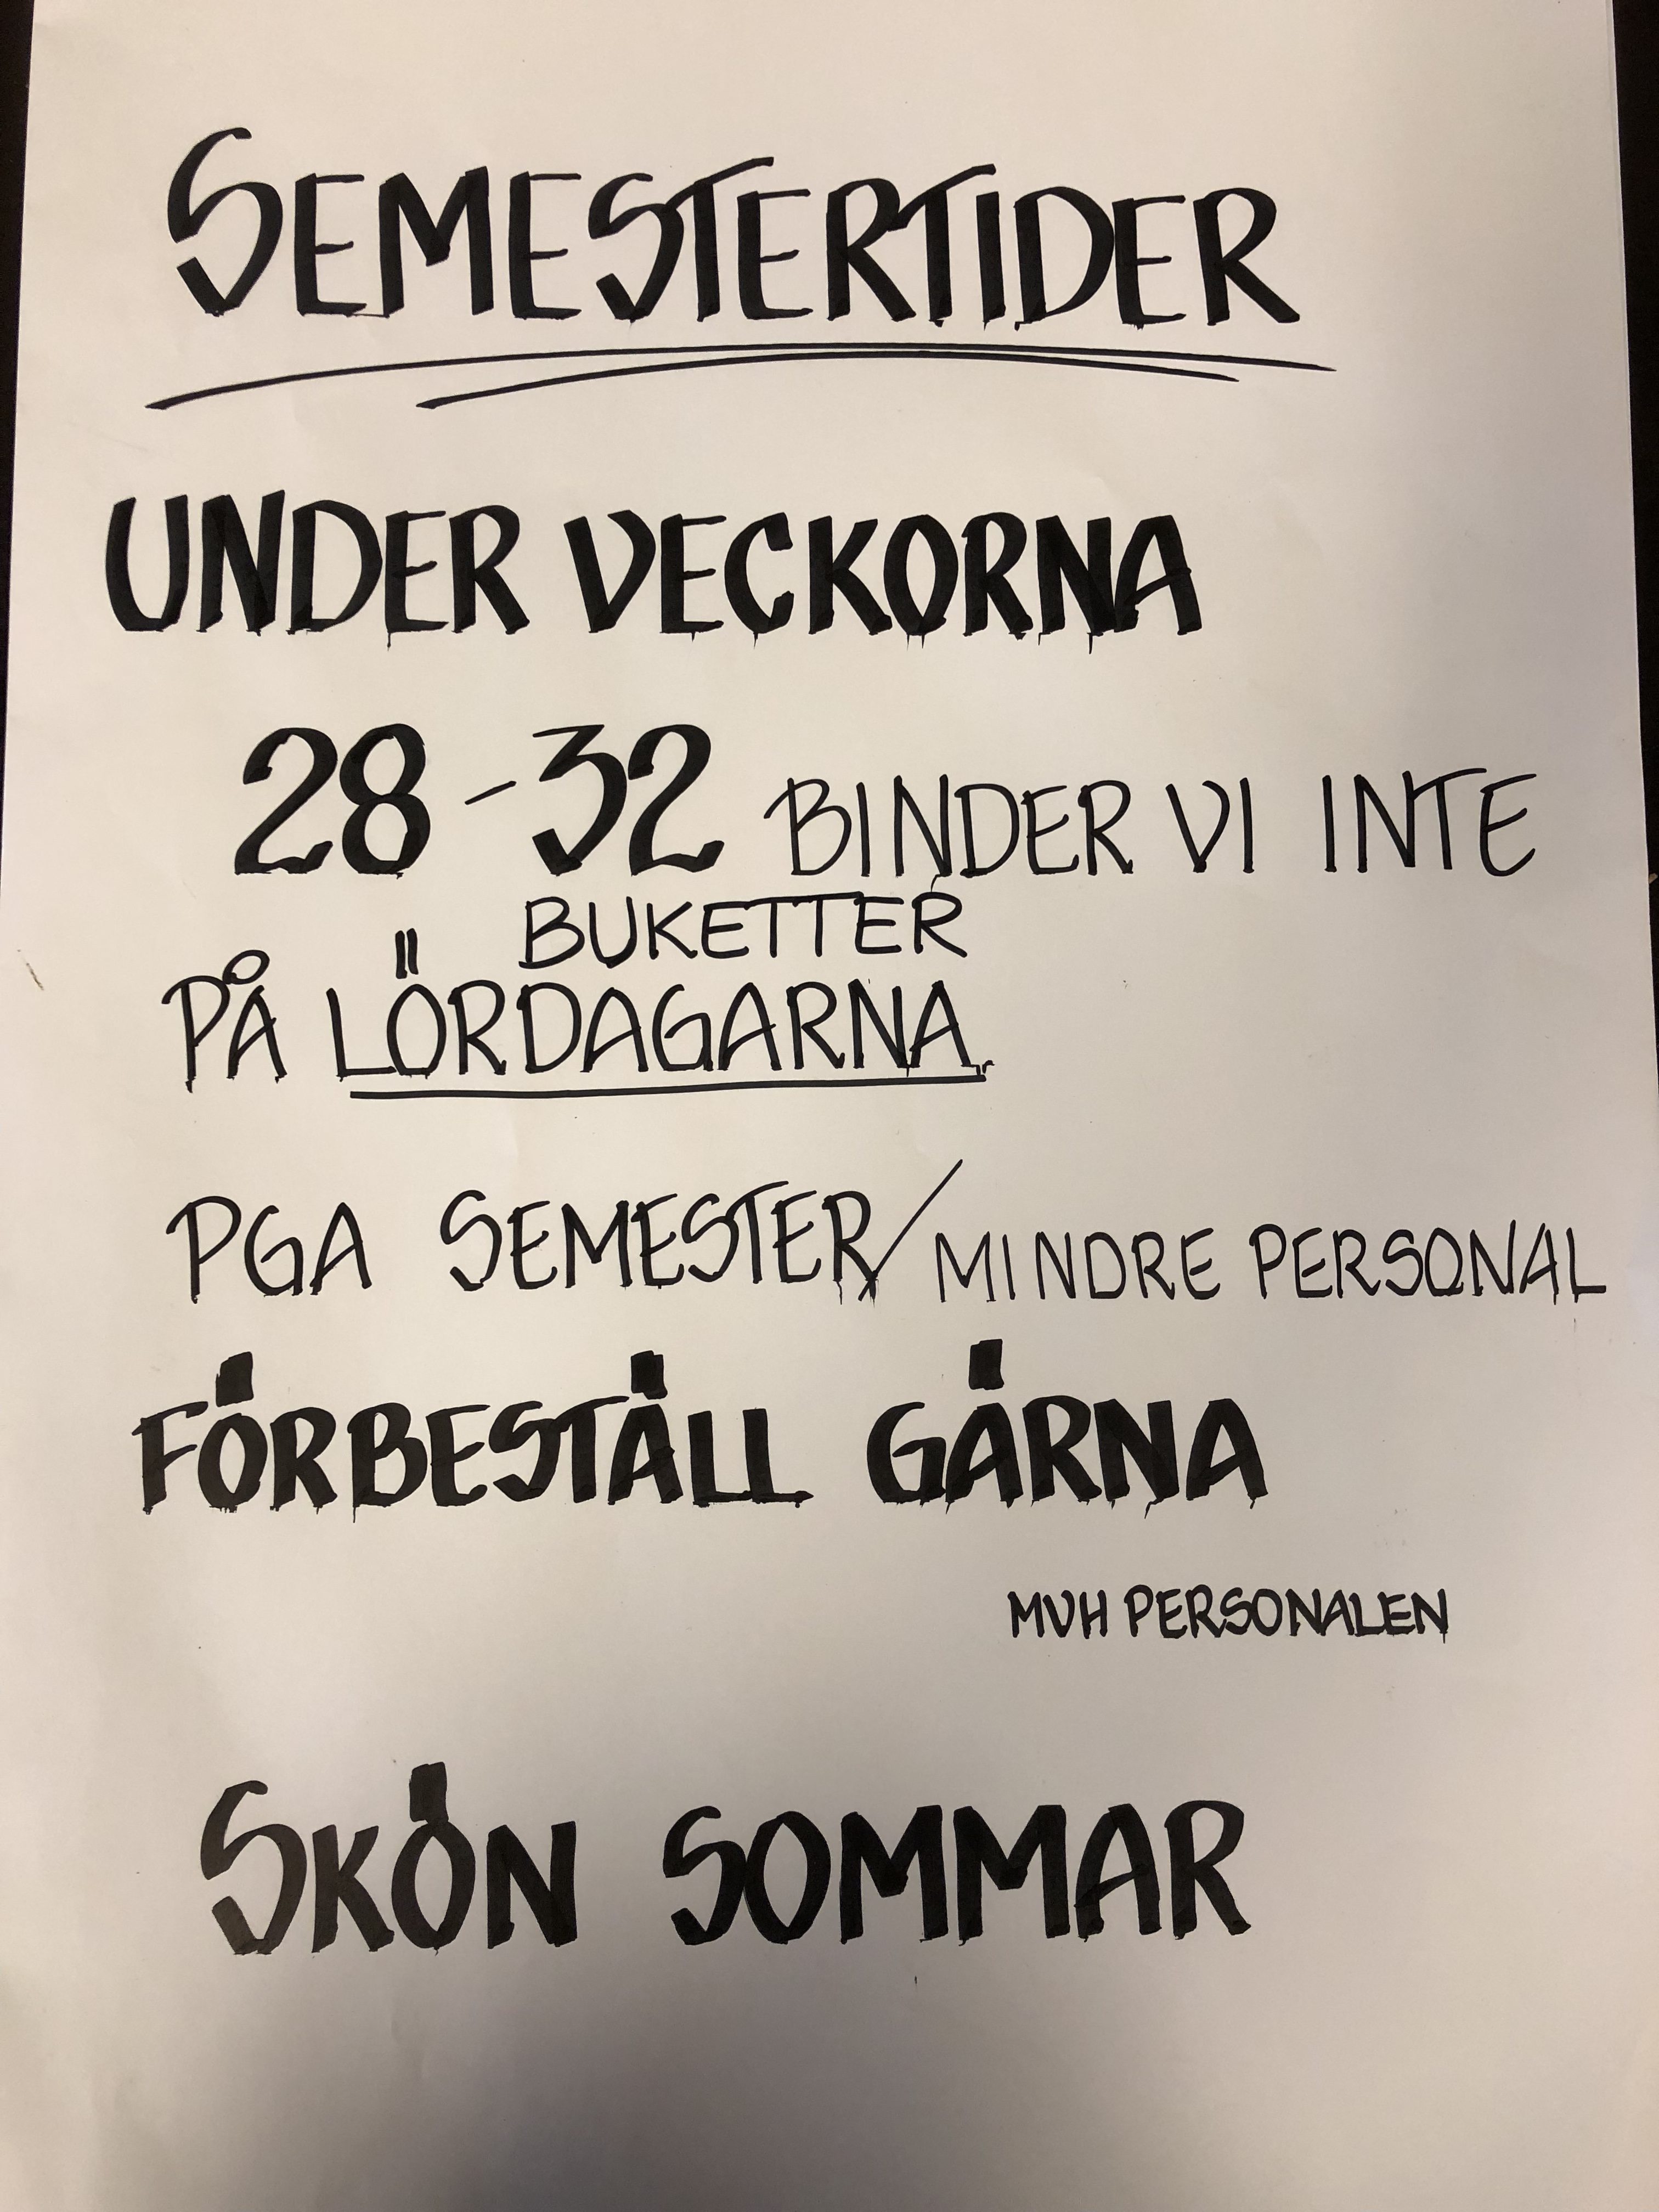 SEMESTERTIDER
UNDER VECKORNA
28-32 BINDER VI INTE
BUKETTER
PÅ LÖRDAGARNA.
PGA SEMESTER/MINDRE PERSONAL
FÖRBESTÄLL GÄRNA
MVH PERSONALEN
SKÖN SOMMAR